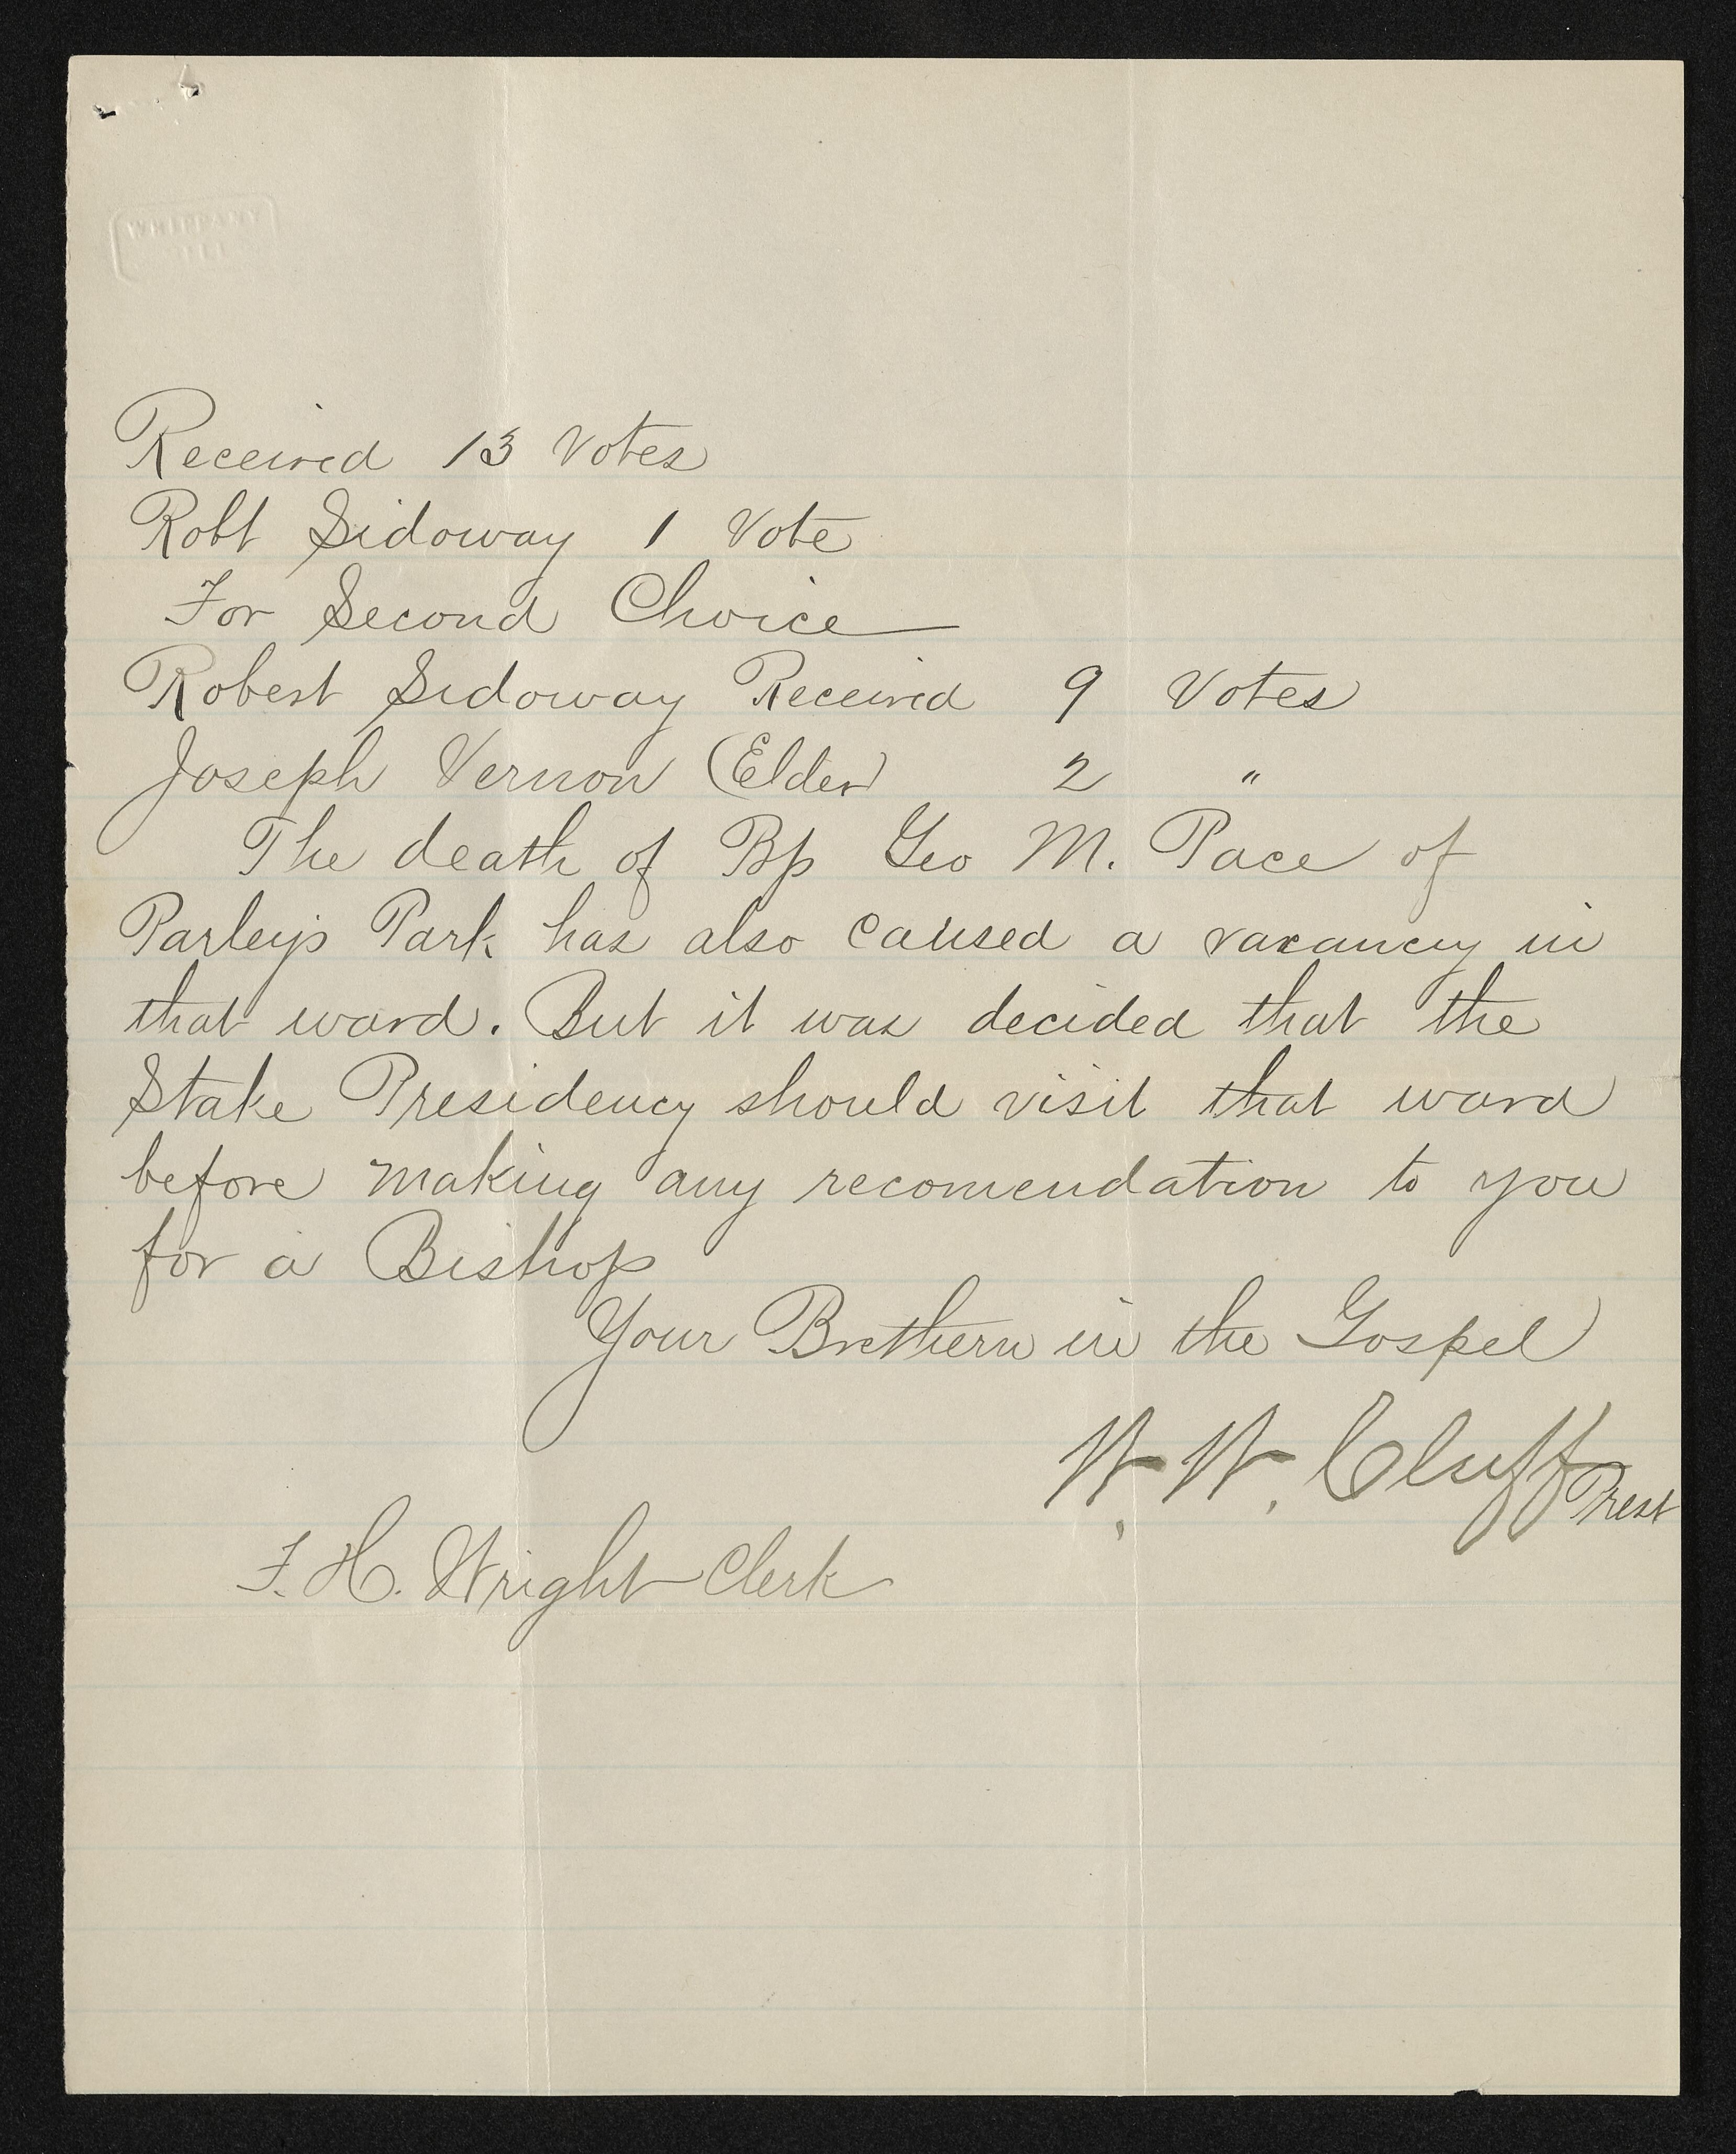 WHIPPANY
MILL
Received 13 Votes
Robt Sidoway 1 Vote
For Second Choice
Robert Sidoway Received 9 Votes
Joseph Vernon (Elder) 2 "
The death of Bp Geo M. Pace of
Parleys Park has also caused a vacancy in
that ward. But it was decided that the
Stake Presidency should visit that ward
before making any recomendation to you
for a Bishop
Your Brethern in the Gospel
W. W. Cluff Prest
F. H. Wright Clerk